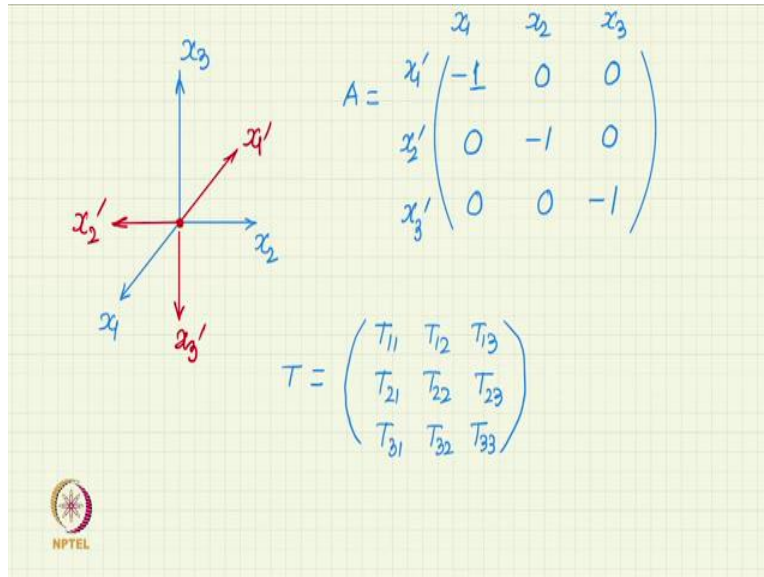 x₃
x₁′
x₂′
x₂
x₁
x₃′
x₁ x₂ x₃
A = x₁′ ( -1 0 0 )
x₂′ ( 0 -1 0 )
x₃′ ( 0 0 -1 )
T = ( T₁₁ T₁₂ T₁₃ )
( T₂₁ T₂₂ T₂₃ )
( T₃₁ T₃₂ T₃₃ )
NPTEL